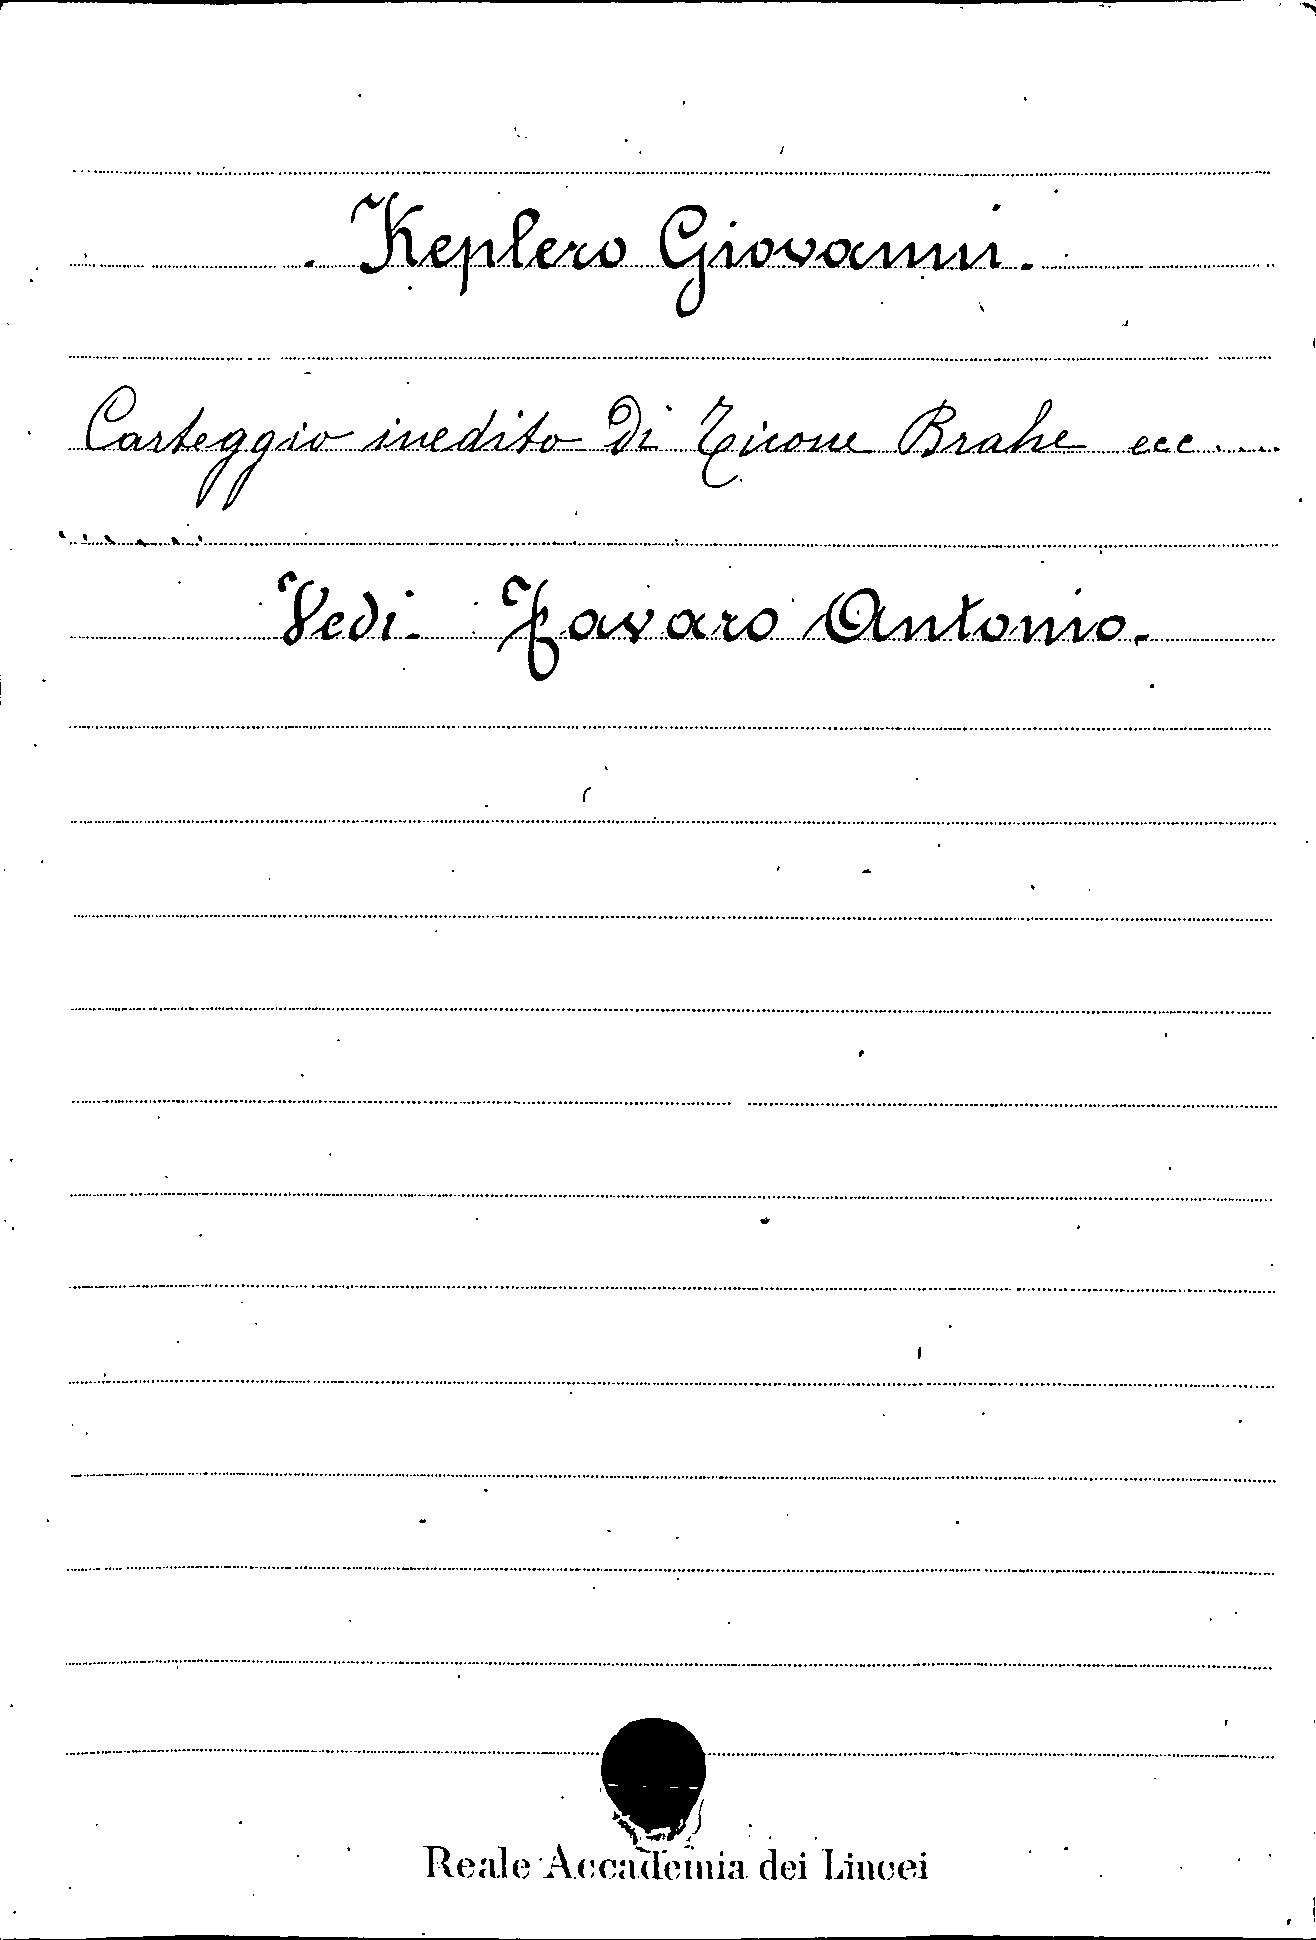 Keplero Giovanni.
Carteggio inedito di Ticone Brahe ecc....
......
Vedi Favaro Antonio.
Reale Accademia dei Lincei